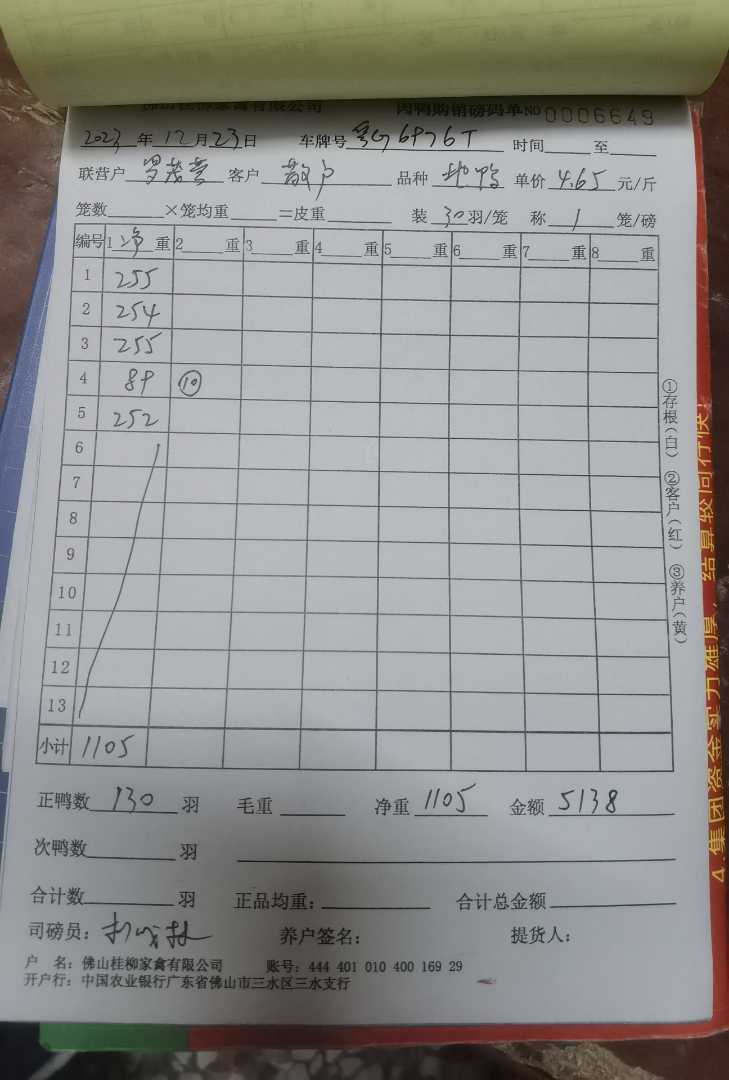 佛山桂柳家禽有限公司 肉鸭购销磅码单 NO 0006649
2023年12月23日 车牌号 粤G6P76T 时间 至
联营户 客户 散户 品种 单价 4.65 元/斤
笼数 ×笼均重 =皮重 装 30 羽/笼 称 1 笼/磅
编号 1 净 重 2 重 3 重 4 重 5 重 6 重 7 重 8 重
1 255
2 254
3 255
4 89 ⑩
5 252
6
7
8
9
10
11
12
13
小计 1105
正鸭数 130 羽 毛重 净重 1105 金额 5138
次鸭数 羽
合计数 羽 正品均重: 合计总金额
司磅员: 养户签名: 提货人:
户 名: 佛山桂柳家禽有限公司 账号: 444 401 010 400 169 29
开户行: 中国农业银行广东省佛山市三水区三水支行
①存根(白) ②客户(红) ③养户(黄)
4.集团资金实力雄厚、结算较同行快